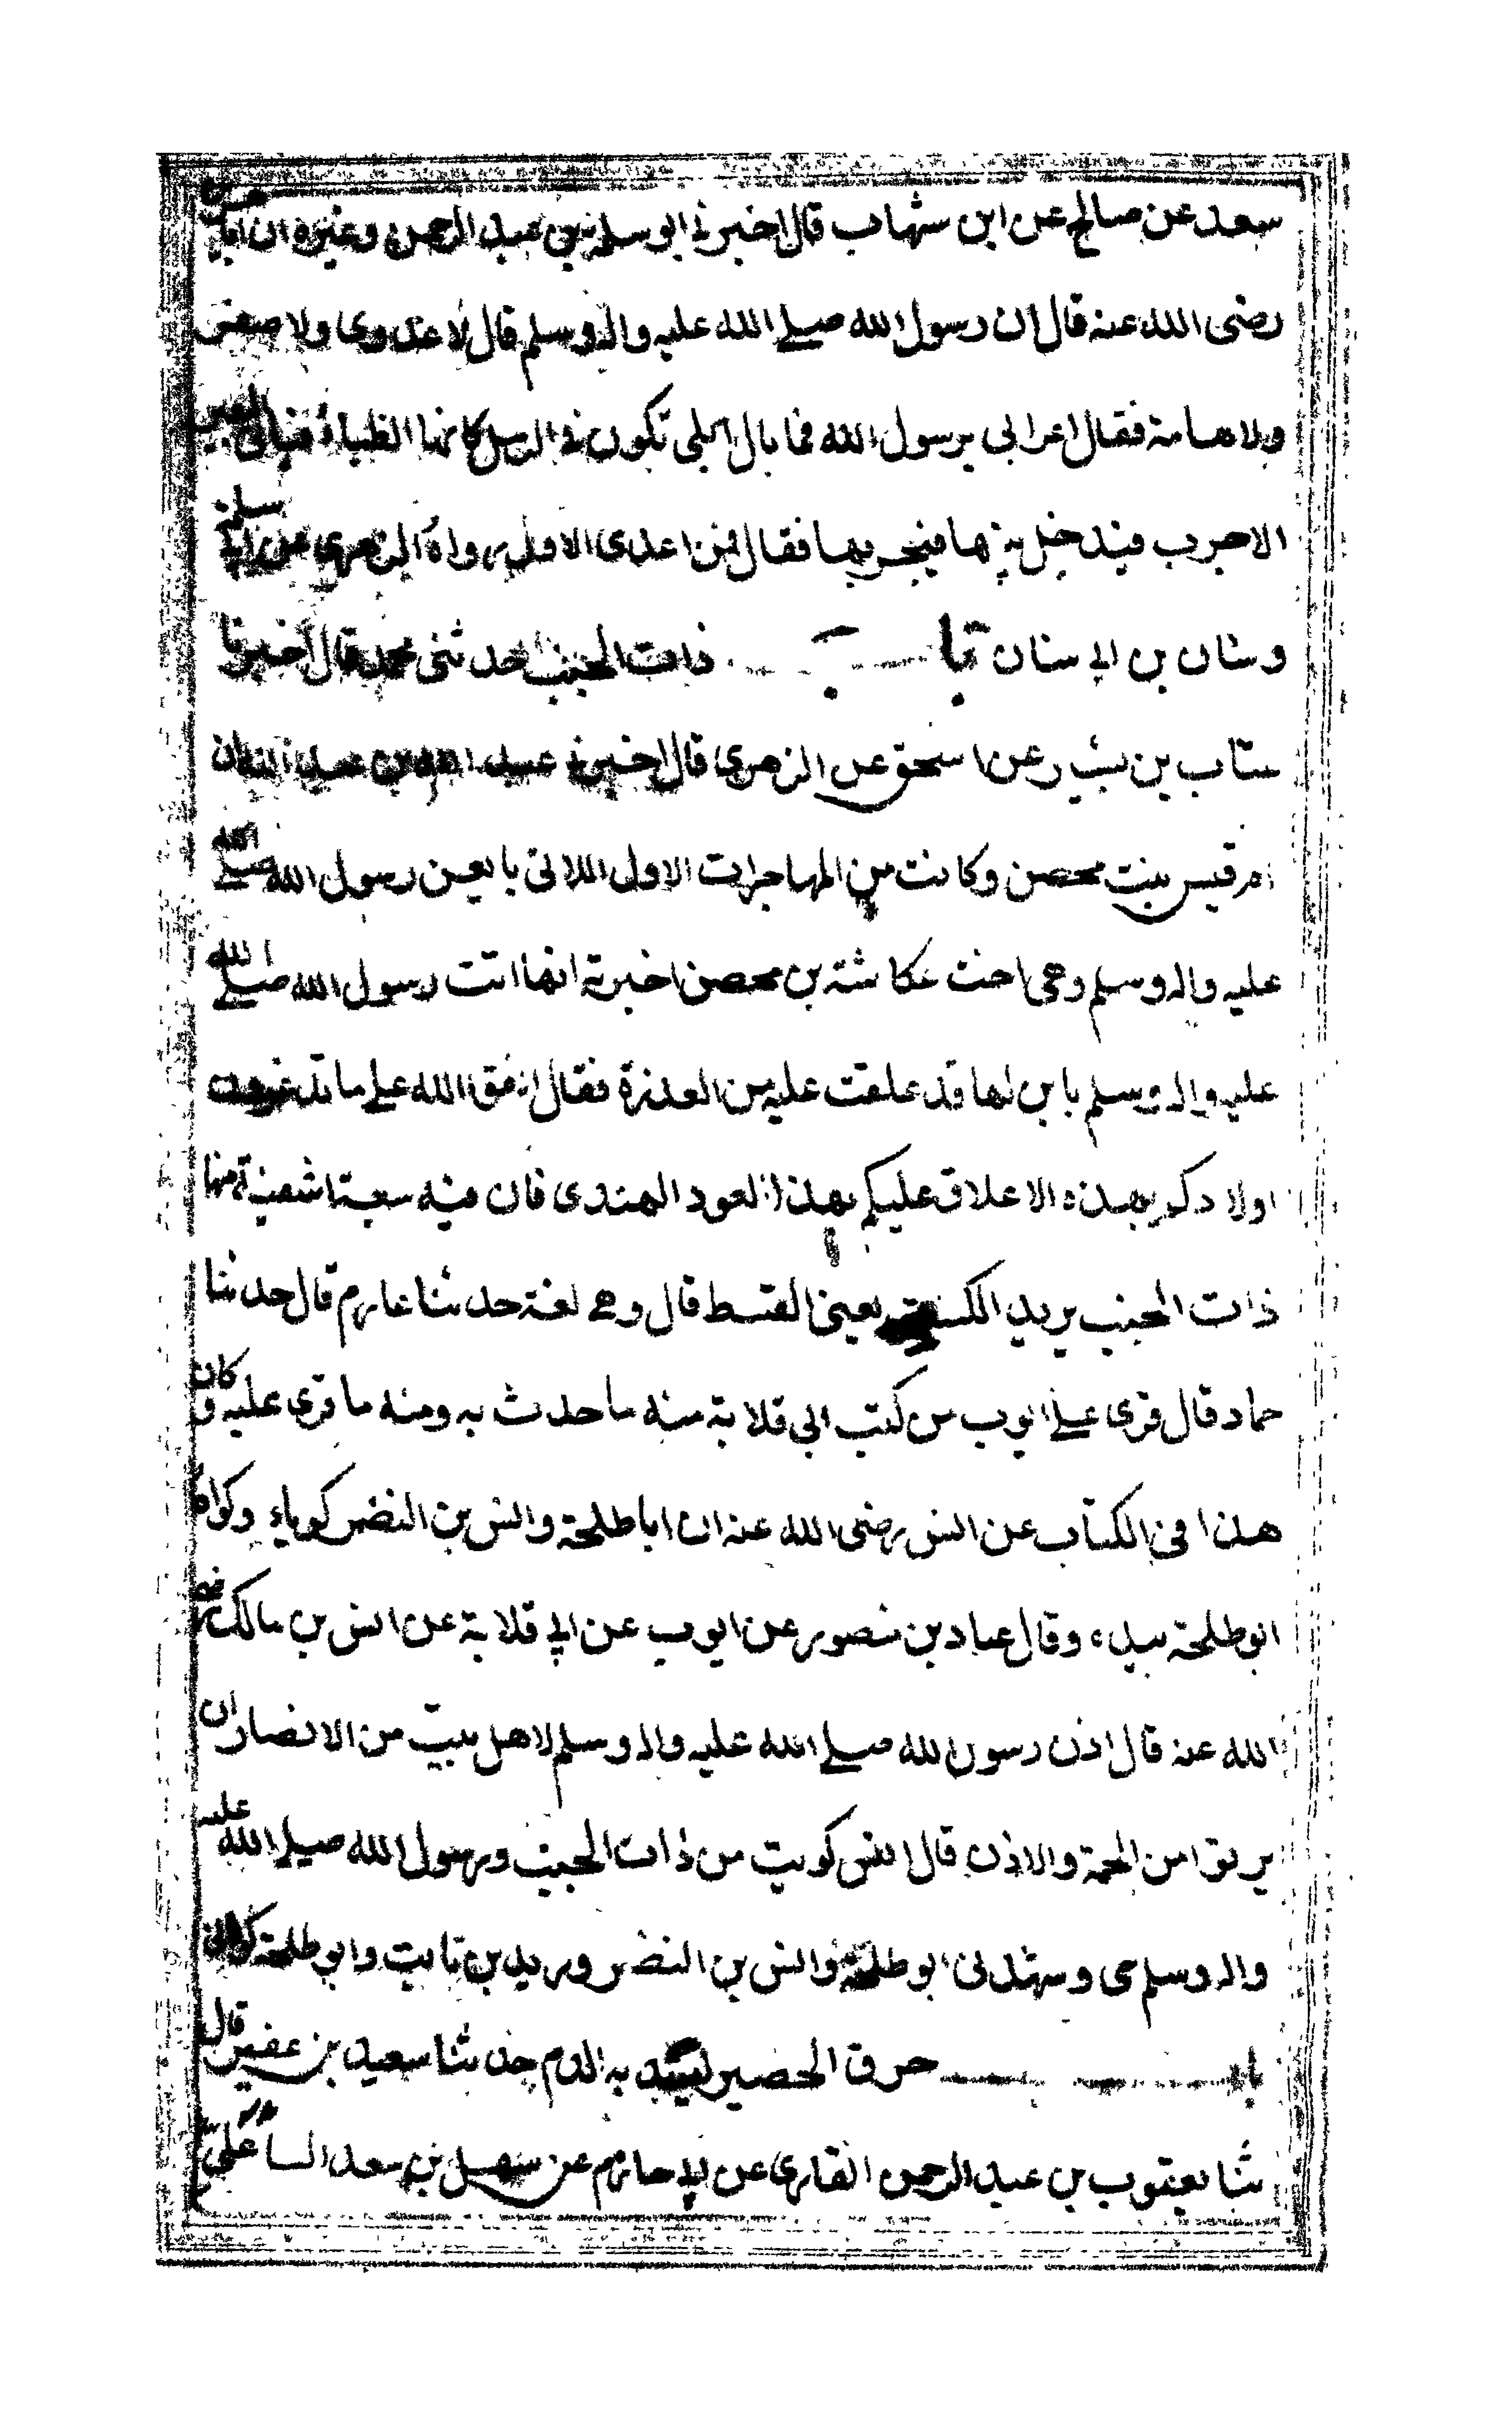 سعد عن صالح عن ابن شهاب قال اخبرنى ابو سلمة بن عبد الرحمن وغيره ان ابا
رضى الله عنه قال ان رسول الله صلے الله عليه واله وسلم قال لا عدوى ولا صفر
ولا هامة فقال اعرابى يرسول الله فما بال ابلى تكون فى الرمل كانها الظباء فياتى البعير
الاجرب فيدخل بينها فيجربها فقال فمن اعدى الاول رواه الزهرى عن ابى سلمة
وسنان بن ابى سنان باب ذات الجنب حدثنى محمد قال اخبرنا
عتاب بن بشير عن اسحق عن الزهرى قال اخبرنى عبيد الله بن عبد الله ان
ام قيس بنت محصن وكانت من المهاجرات الاول اللاتى بايعن رسول الله صلے الله
عليه واله وسلم وهى اخت عكاشة بن محصن اخبرته انها اتت رسول الله صلے الله
عليه واله وسلم بابن لها قد علقت عليه من العذرة فقال اتقوا الله على ما تدغرون
اولادكم بهذه الاعلاق عليكم بهذا العود الهندى فان فيه سبعة اشفية منها
ذات الجنب يريد الكست يعنى القسط قال وهى لغة حدثنا عارم قال حدثنا
حماد قال قرى على ايوب من كتب ابى قلابة منه ما حدث به ومنه ما قرى عليه وكان
هذا فى الكتاب عن انس رضى الله عنه ان ابا طلحة وانس بن النضر كوياه وكواه
ابو طلحة بيده وقال عباد بن منصور عن ايوب عن ابى قلابة عن انس بن مالك رضى
الله عنه قال اذن رسول الله صلے الله عليه واله وسلم لاهل بيت من الانصار ان
يرقوا من الحمة والاذن قال انس كويت من ذات الجنب ورسول الله صلے الله عليه
واله وسلم حى وشهدنى ابو طلحة وانس بن النضر وزيد بن ثابت وابو طلحة كوانى
باب حرق الحصير ليسد به الدم حدثنا سعيد بن عفير قال
ثنا يعقوب بن عبد الرحمن القارى عن ابى حازم عن سهل بن سعد الساعدى